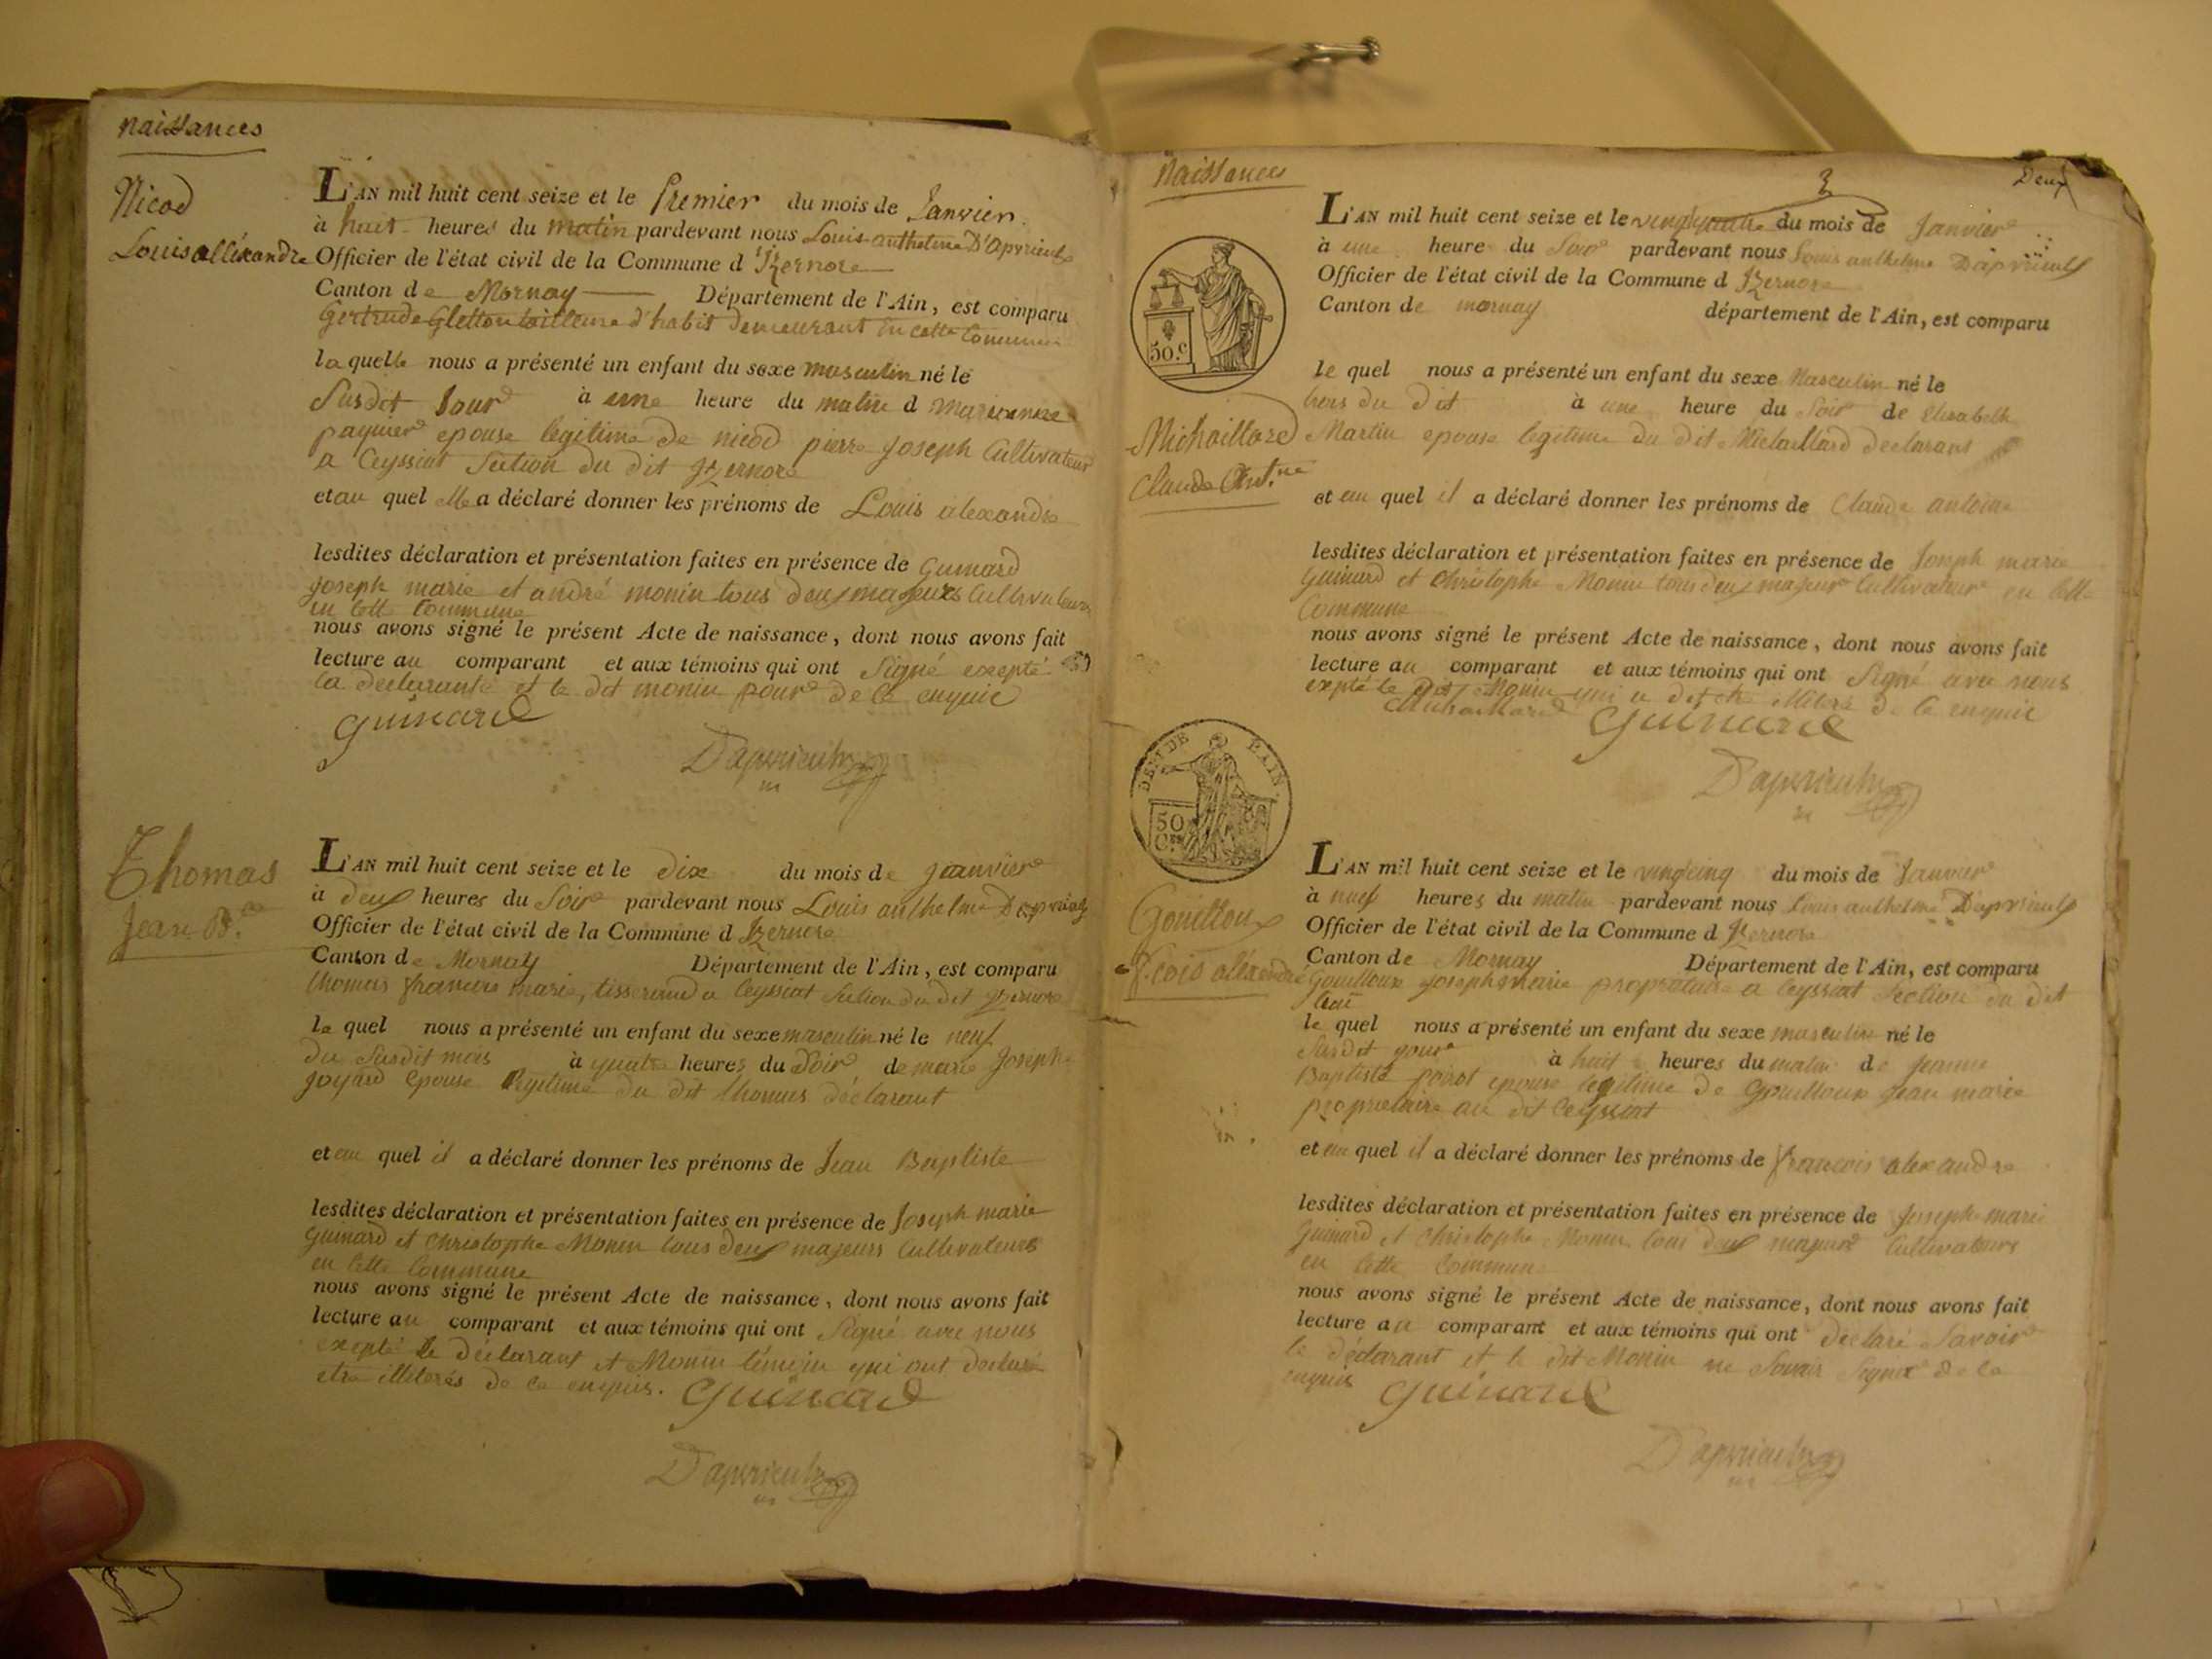 naissances
Nicod
Louis alléxandre
L'AN mil huit cent seize et le Premier du mois de Janvier
à huit heures du matin pardevant nous Louis anthelme D'apvrieulx
Officier de l'état civil de la Commune d Izernore
Canton de Mornay Département de l'Ain, est comparu
Gertrude Gletton tailleuse d'habit demeurant en cette Commune
la quelle nous a présenté un enfant du sexe masculin né le
Susdit Jour à une heure du matin d marianne
paquier epouse legitime de nicod pierre joseph Cultivateur
a Ceyssiat Section du dit Izernore
et au quel elle a déclaré donner les prénoms de Louis alexandre
lesdites déclaration et présentation faites en présence de Guinard
joseph marie et andré monin tous deux majeurs Cultivateurs
en cette Commune
nous avons signé le présent Acte de naissance, dont nous avons fait
lecture au comparant et aux témoins qui ont Signé excepté
la declarante et le dit monin pour de ce enquis
Guinard
D'apvrieulx
Thomas
Jean Bte
L'AN mil huit cent seize et le dix du mois de janvier
à deux heures du Soir pardevant nous Louis anthelme D'apvrieulx
Officier de l'état civil de la Commune d Izernore
Canton de Mornay Département de l'Ain, est comparu
thomas francois marie, tisserand a Ceyssiat Section du dit Izernore
le quel nous a présenté un enfant du sexe masculin né le neuf
du Susdit mois à quatre heures du Soir de marie Joseph
joyard epouse legitime du dit thomas déclarant
et au quel il a déclaré donner les prénoms de Jean Baptiste
lesdites déclaration et présentation faites en présence de Joseph marie
guinard et christophe Monin tous deux majeurs Cultivateurs
en cette Commune
nous avons signé le présent Acte de naissance, dont nous avons fait
lecture au comparant et aux témoins qui ont Signé avec nous
excepté le déclarant et Monin témoin qui ont declaré
etre illiterés de ce enquis. Guinard
D'apvrieulx
naissances
3
Deux
50.c
Michaillard
Claude Antne
L'AN mil huit cent seize et le vingtquatre du mois de Janvier
à une heure du Soir pardevant nous Louis anthelme D'apvrieulx
Officier de l'état civil de la Commune d Izernore
Canton de mornay département de l'Ain, est comparu
le quel nous a présenté un enfant du sexe Masculin né le
du dit à une heure du Soir de elisabeth
Martin epouse legitime du dit Michaillard declarant
et au quel il a déclaré donner les prénoms de Claude antoine
lesdites déclaration et présentation faites en présence de Joseph marie
guinard et christophe Monin tous deux majeur Cultivateur en cette
Commune
nous avons signé le présent Acte de naissance, dont nous avons fait
lecture au comparant et aux témoins qui ont Signé avec nous
expté le dit Monin qui a dit etre illiteré de ce enquis
Michaillard Guinard
D'apvrieulx
DEP.T DE L'AIN.
50
C.mes
Gouilloux
F.cois aléxandre
L'AN mil huit cent seize et le vingtcinq du mois de Janvier
à neuf heures du matin pardevant nous Louis anthelme D'apvrieulx
Officier de l'état civil de la Commune d Izernore
Canton de Mornay Département de l'Ain, est comparu
Gouilloux joseph marie proprietaire a Ceyssiat Section du dit
lieu
le quel nous a présenté un enfant du sexe masculin né le
Susdit jour à huit heures du matin de jeanne
Baptiste poncet epouse legitime de Gouilloux jean marie
proprietaire au dit Ceyssiat
et au quel il a déclaré donner les prénoms de francois alexandre
lesdites déclaration et présentation faites en présence de Joseph marie
guinard et christophe Monin tous deux majeurs Cultivateurs
en cette Commune
nous avons signé le présent Acte de naissance, dont nous avons fait
lecture au comparant et aux témoins qui ont declaré Savoir
le déclarant et le dit Monin ne Savoir Signer de ce
enquis Guinard
D'apvrieulx